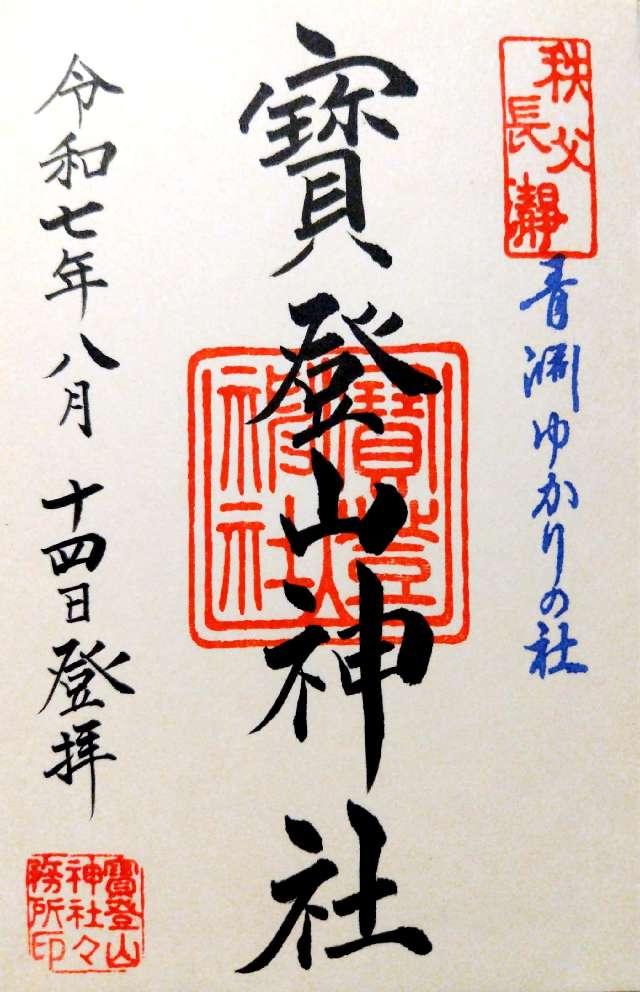 秩父
長瀞
青淵ゆかりの社
寶登山神社
寶登山
神社
令和七年八月十四日登拝
寶登山
神社々
務所印